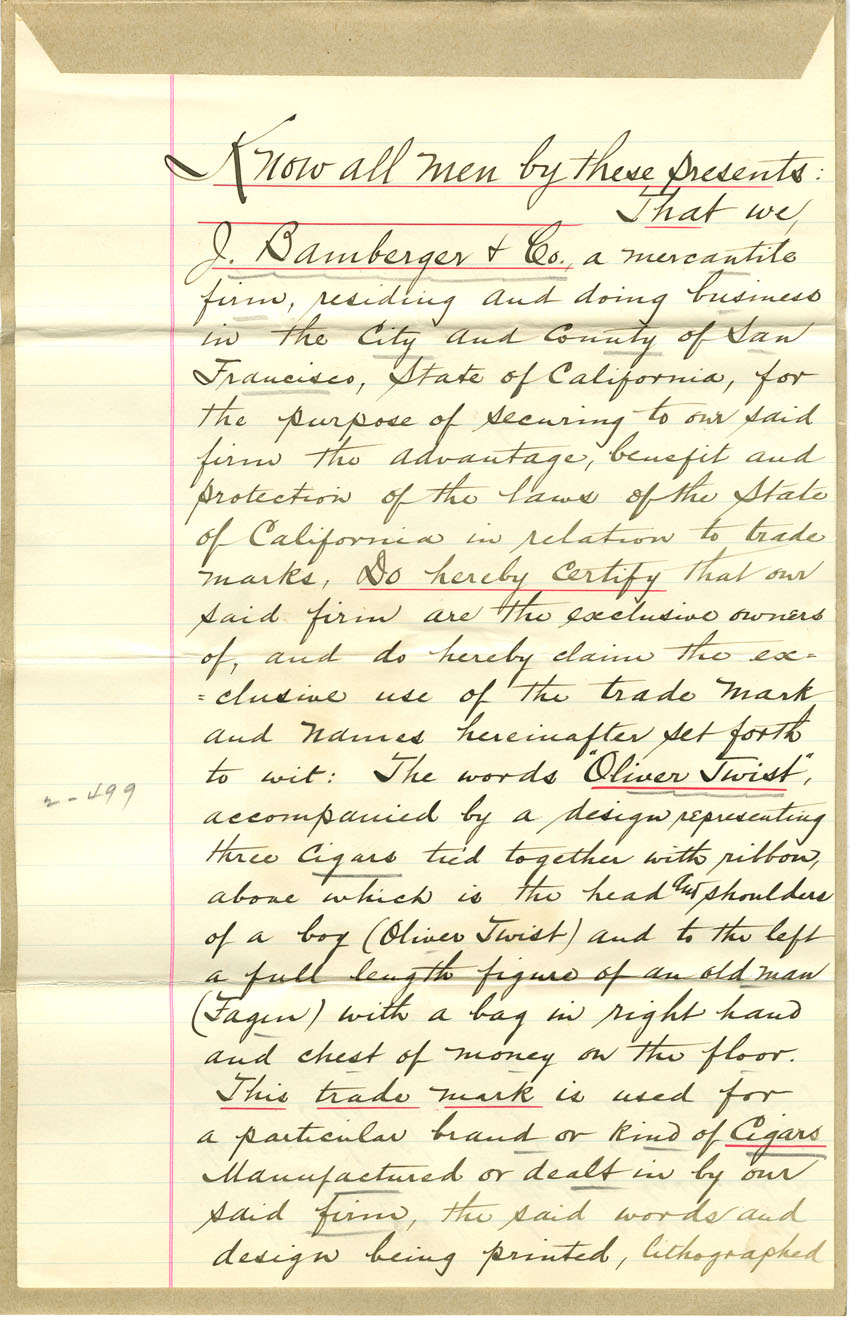 Know all men by these presents:
That we,
J. Bamberger & Co., a mercantile
firm, residing and doing business
in the City and County of San
Francisco, State of California, for
the purpose of securing to our said
firm the advantage, benefit and
protection of the laws of the State
of California in relation to trade
marks, Do hereby certify that our
said firm are the exclusive owners
of, and do hereby claim the ex=
=clusive use of the trade mark
and names hereinafter set forth
to wit: The words "Oliver Twist",
2-499
accompanied by a design representing
three Cigars tied together with ribbon,
above which is the head and shoulders
of a boy (Oliver Twist) and to the left
a full length figure of an old man
(Fagin) with a bag in right hand
and chest of money on the floor.
This trade mark is used for
a particular brand or kind of Cigars
Manufactured or dealt in by our
said firm, the said words and
design being printed, lithographed